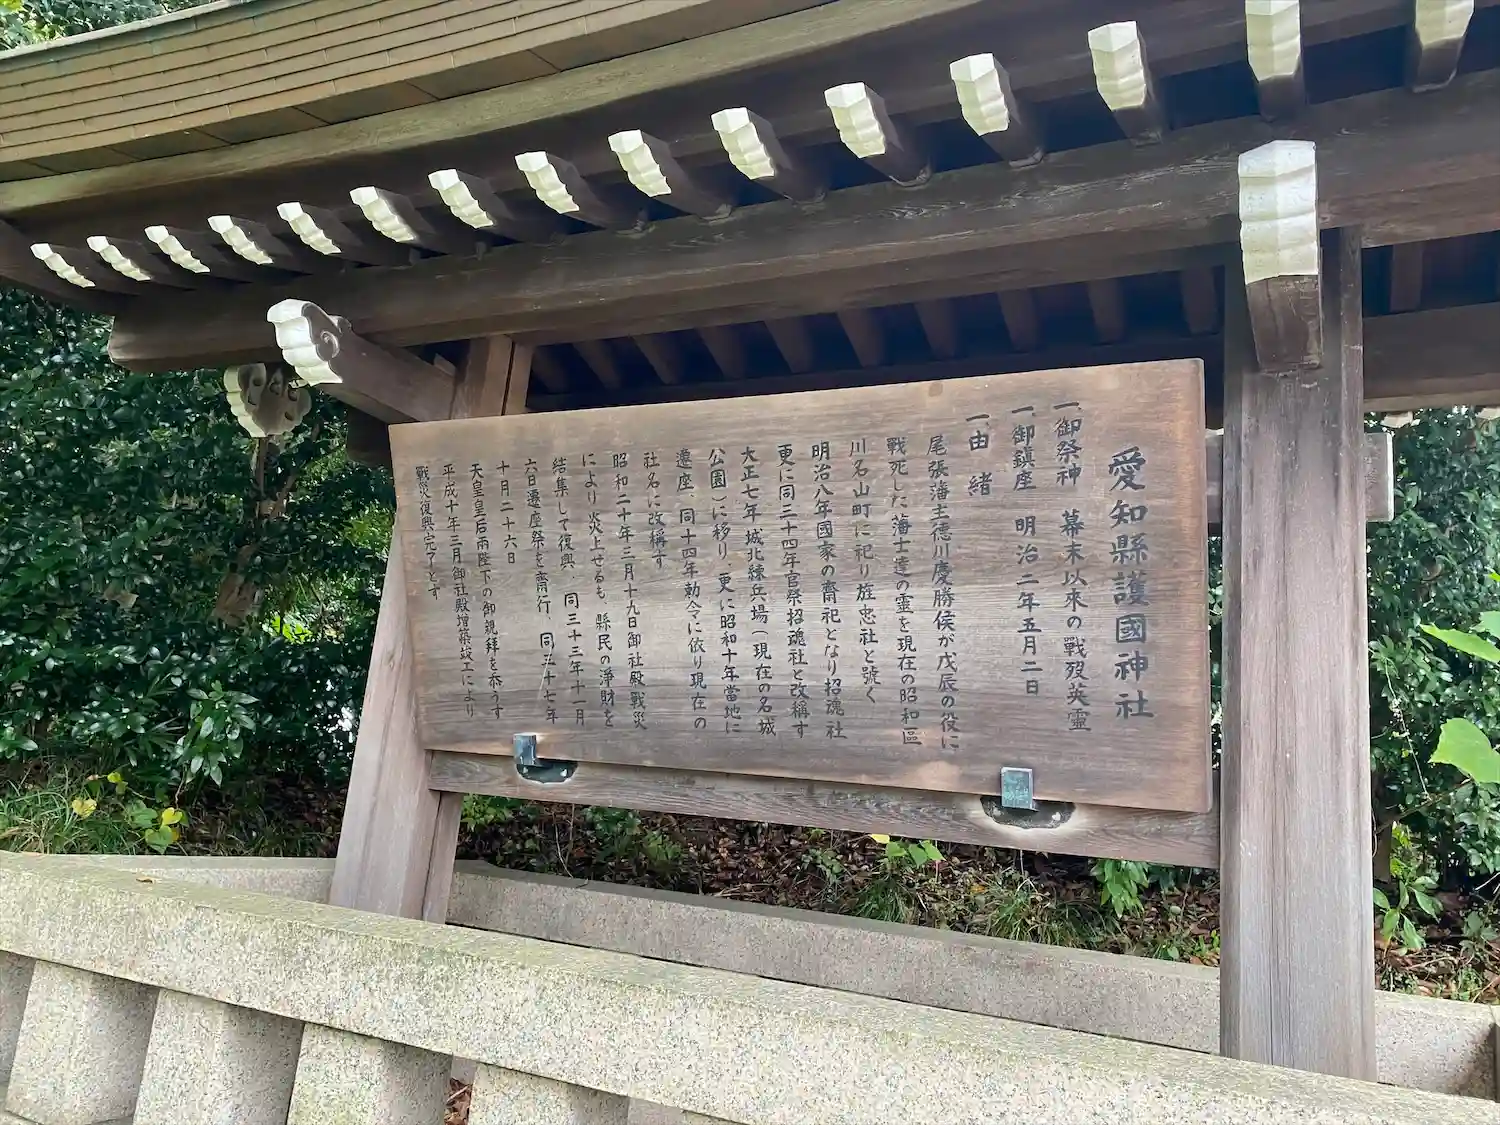 愛知縣護國神社
一、御祭神 幕末以來の戰歿英靈
一、御鎮座 明治二年五月二日
一、由緒
尾張藩主徳川慶勝侯が戊辰の役に
戰死した藩士達の靈を現在の昭和區
川名山町に祀り旌忠社と號く
明治八年國家の齋祀となり招魂社
更に同三十四年官祭招魂社と改稱す
大正七年城北練兵場(現在の名城
公園)に移り、更に昭和十年當地に
遷座、同十四年勅令に依り現在の
社名に改稱す
昭和二十年三月十九日御社殿戰災
により炎上せるも、縣民の淨財を
結集して復興、同三十三年十一月
六日遷座祭を齋行、同三十七年
十月二十六日
天皇皇后兩陛下の御親拜を忝うす
平成十年三月御社殿増築竣工により
戰災復興完了とす